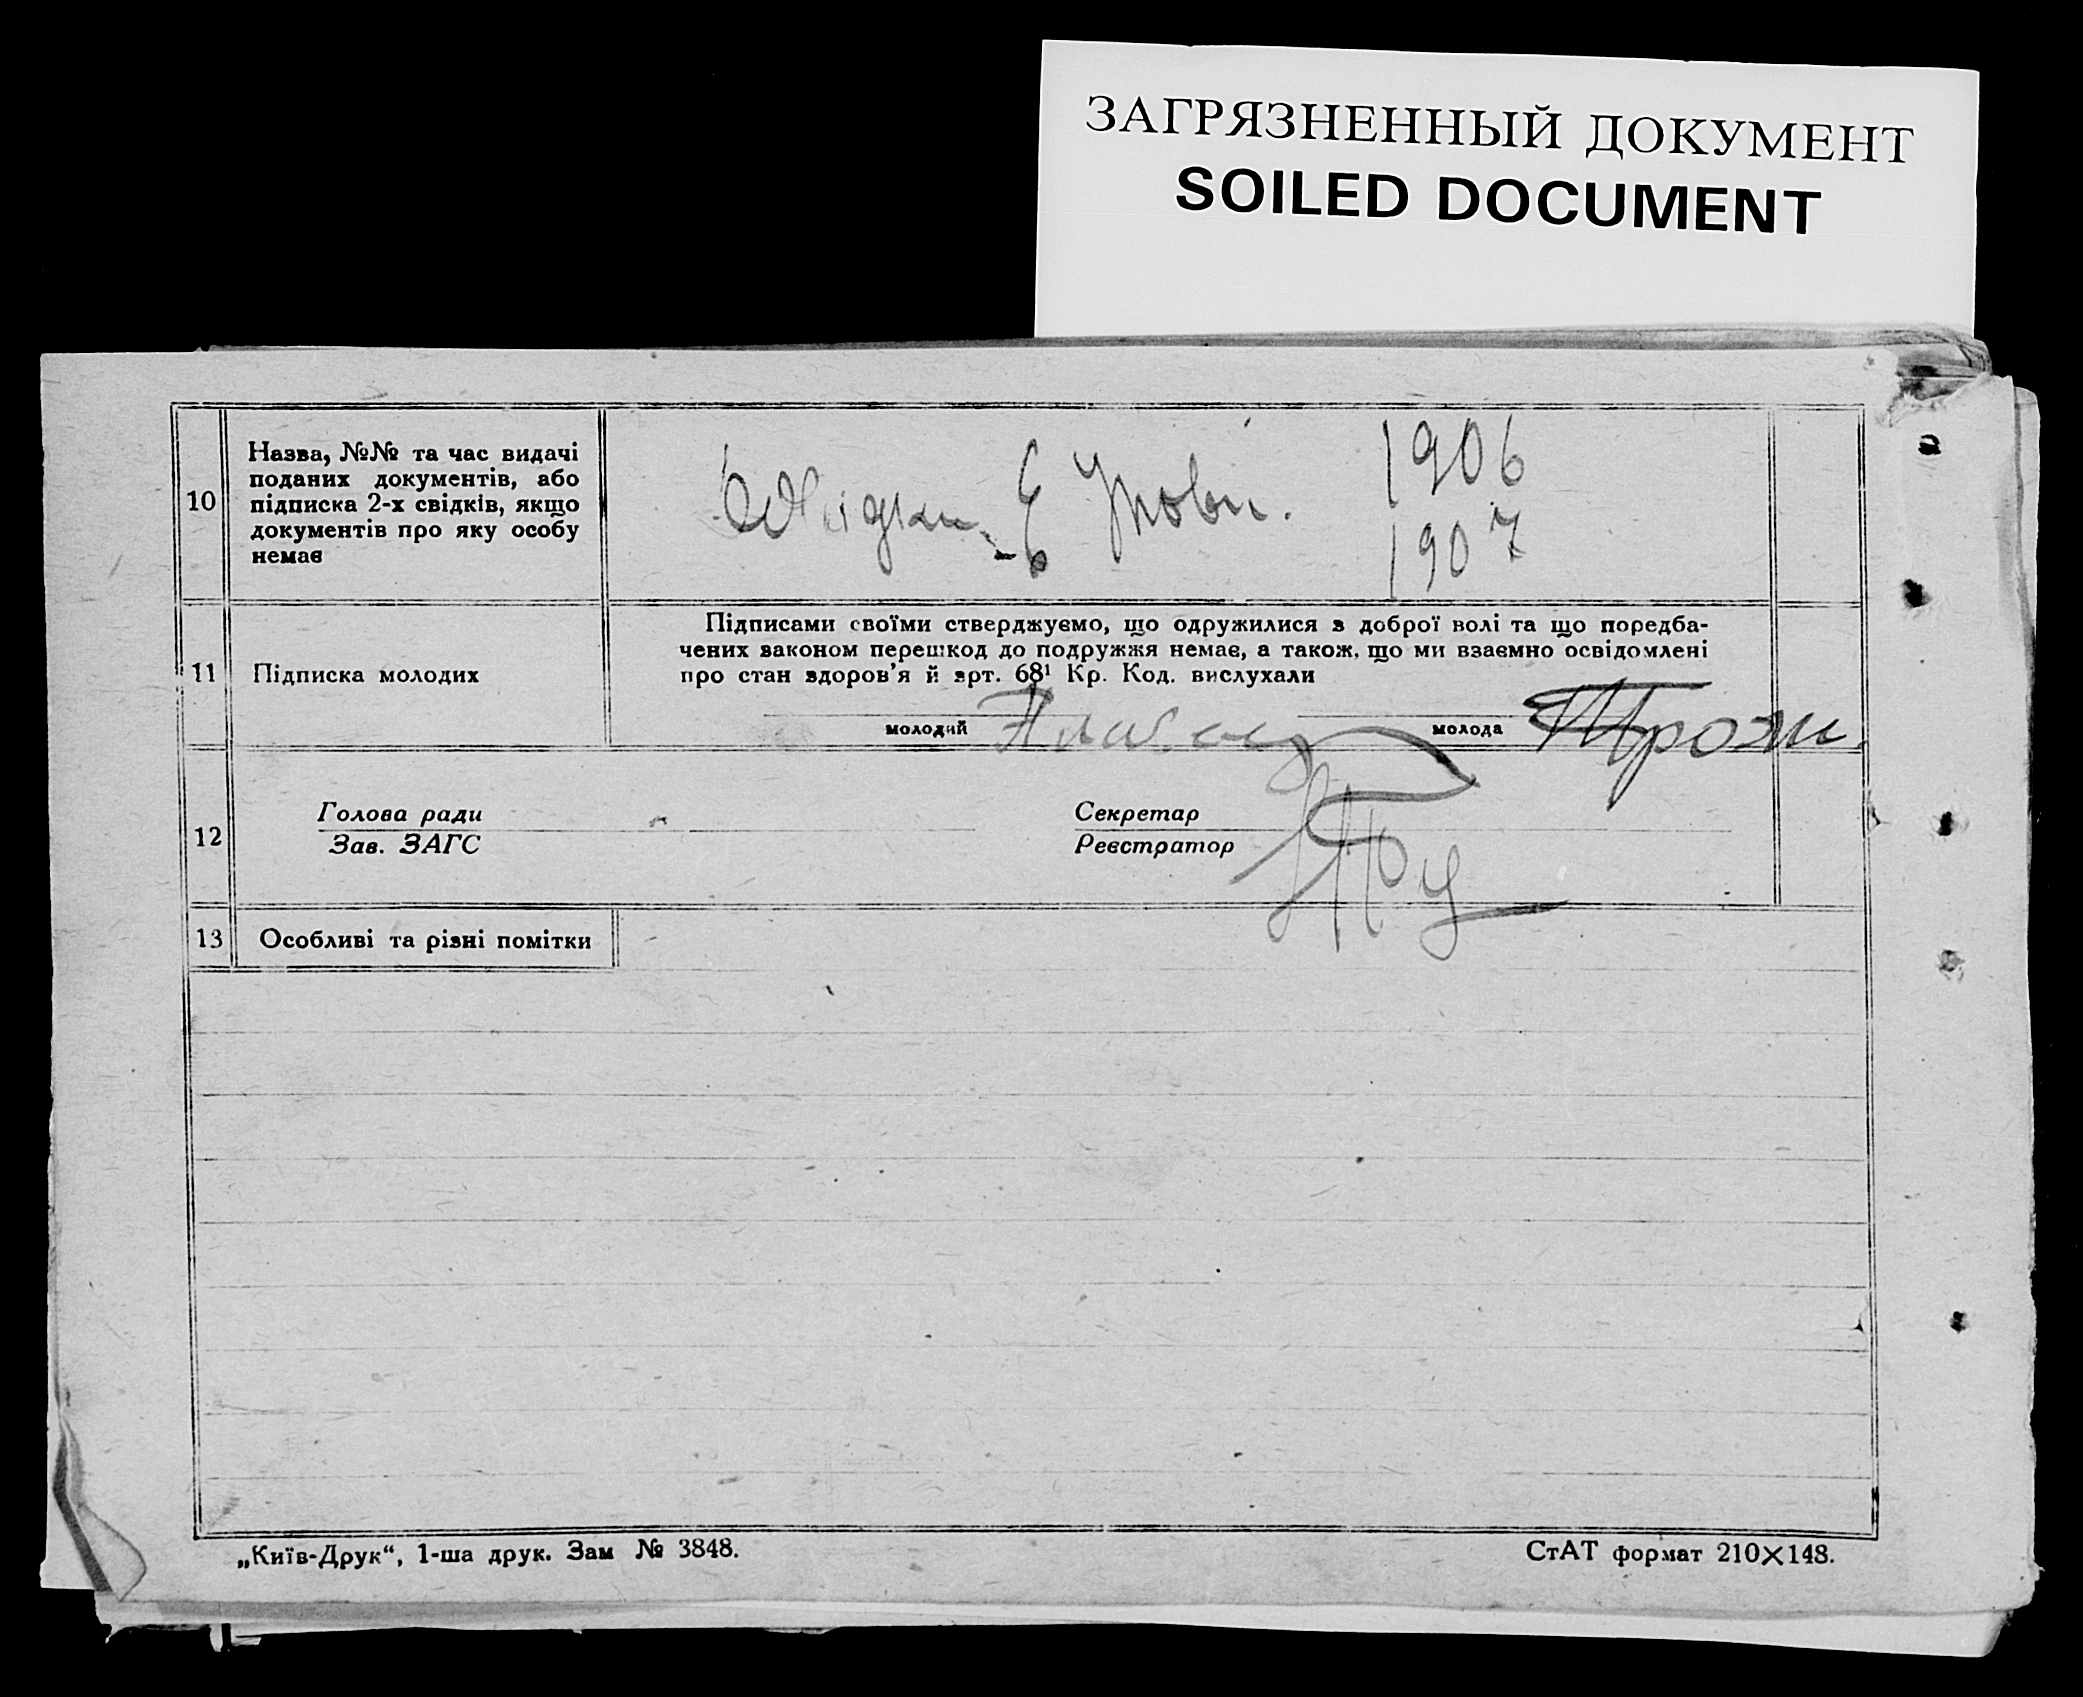 ЗАГРЯЗНЕННЫЙ ДОКУМЕНТ
SOILED DOCUMENT
10
Назва, №№ та час видачі
поданих документів, або
підписка 2-х свідків, якщо
документів про яку особу
немає
1906
1907
11
Підписка молодих
Підписами своїми стверджуємо, що одружилися з доброї волі та що поредба-
чених законом перешкод до подружжя немає, а також, що ми взаємно освідомлені
про стан здоров'я й арт. 68¹ Кр. Код. вислухали
молодий
молода
12
Голова ради
Зав. ЗАГС
Секретар
Реєстратор
13
Особливі та різні помітки
„Київ-Друк“, 1-ша друк. Зам № 3848.
СтАТ формат 210×148.